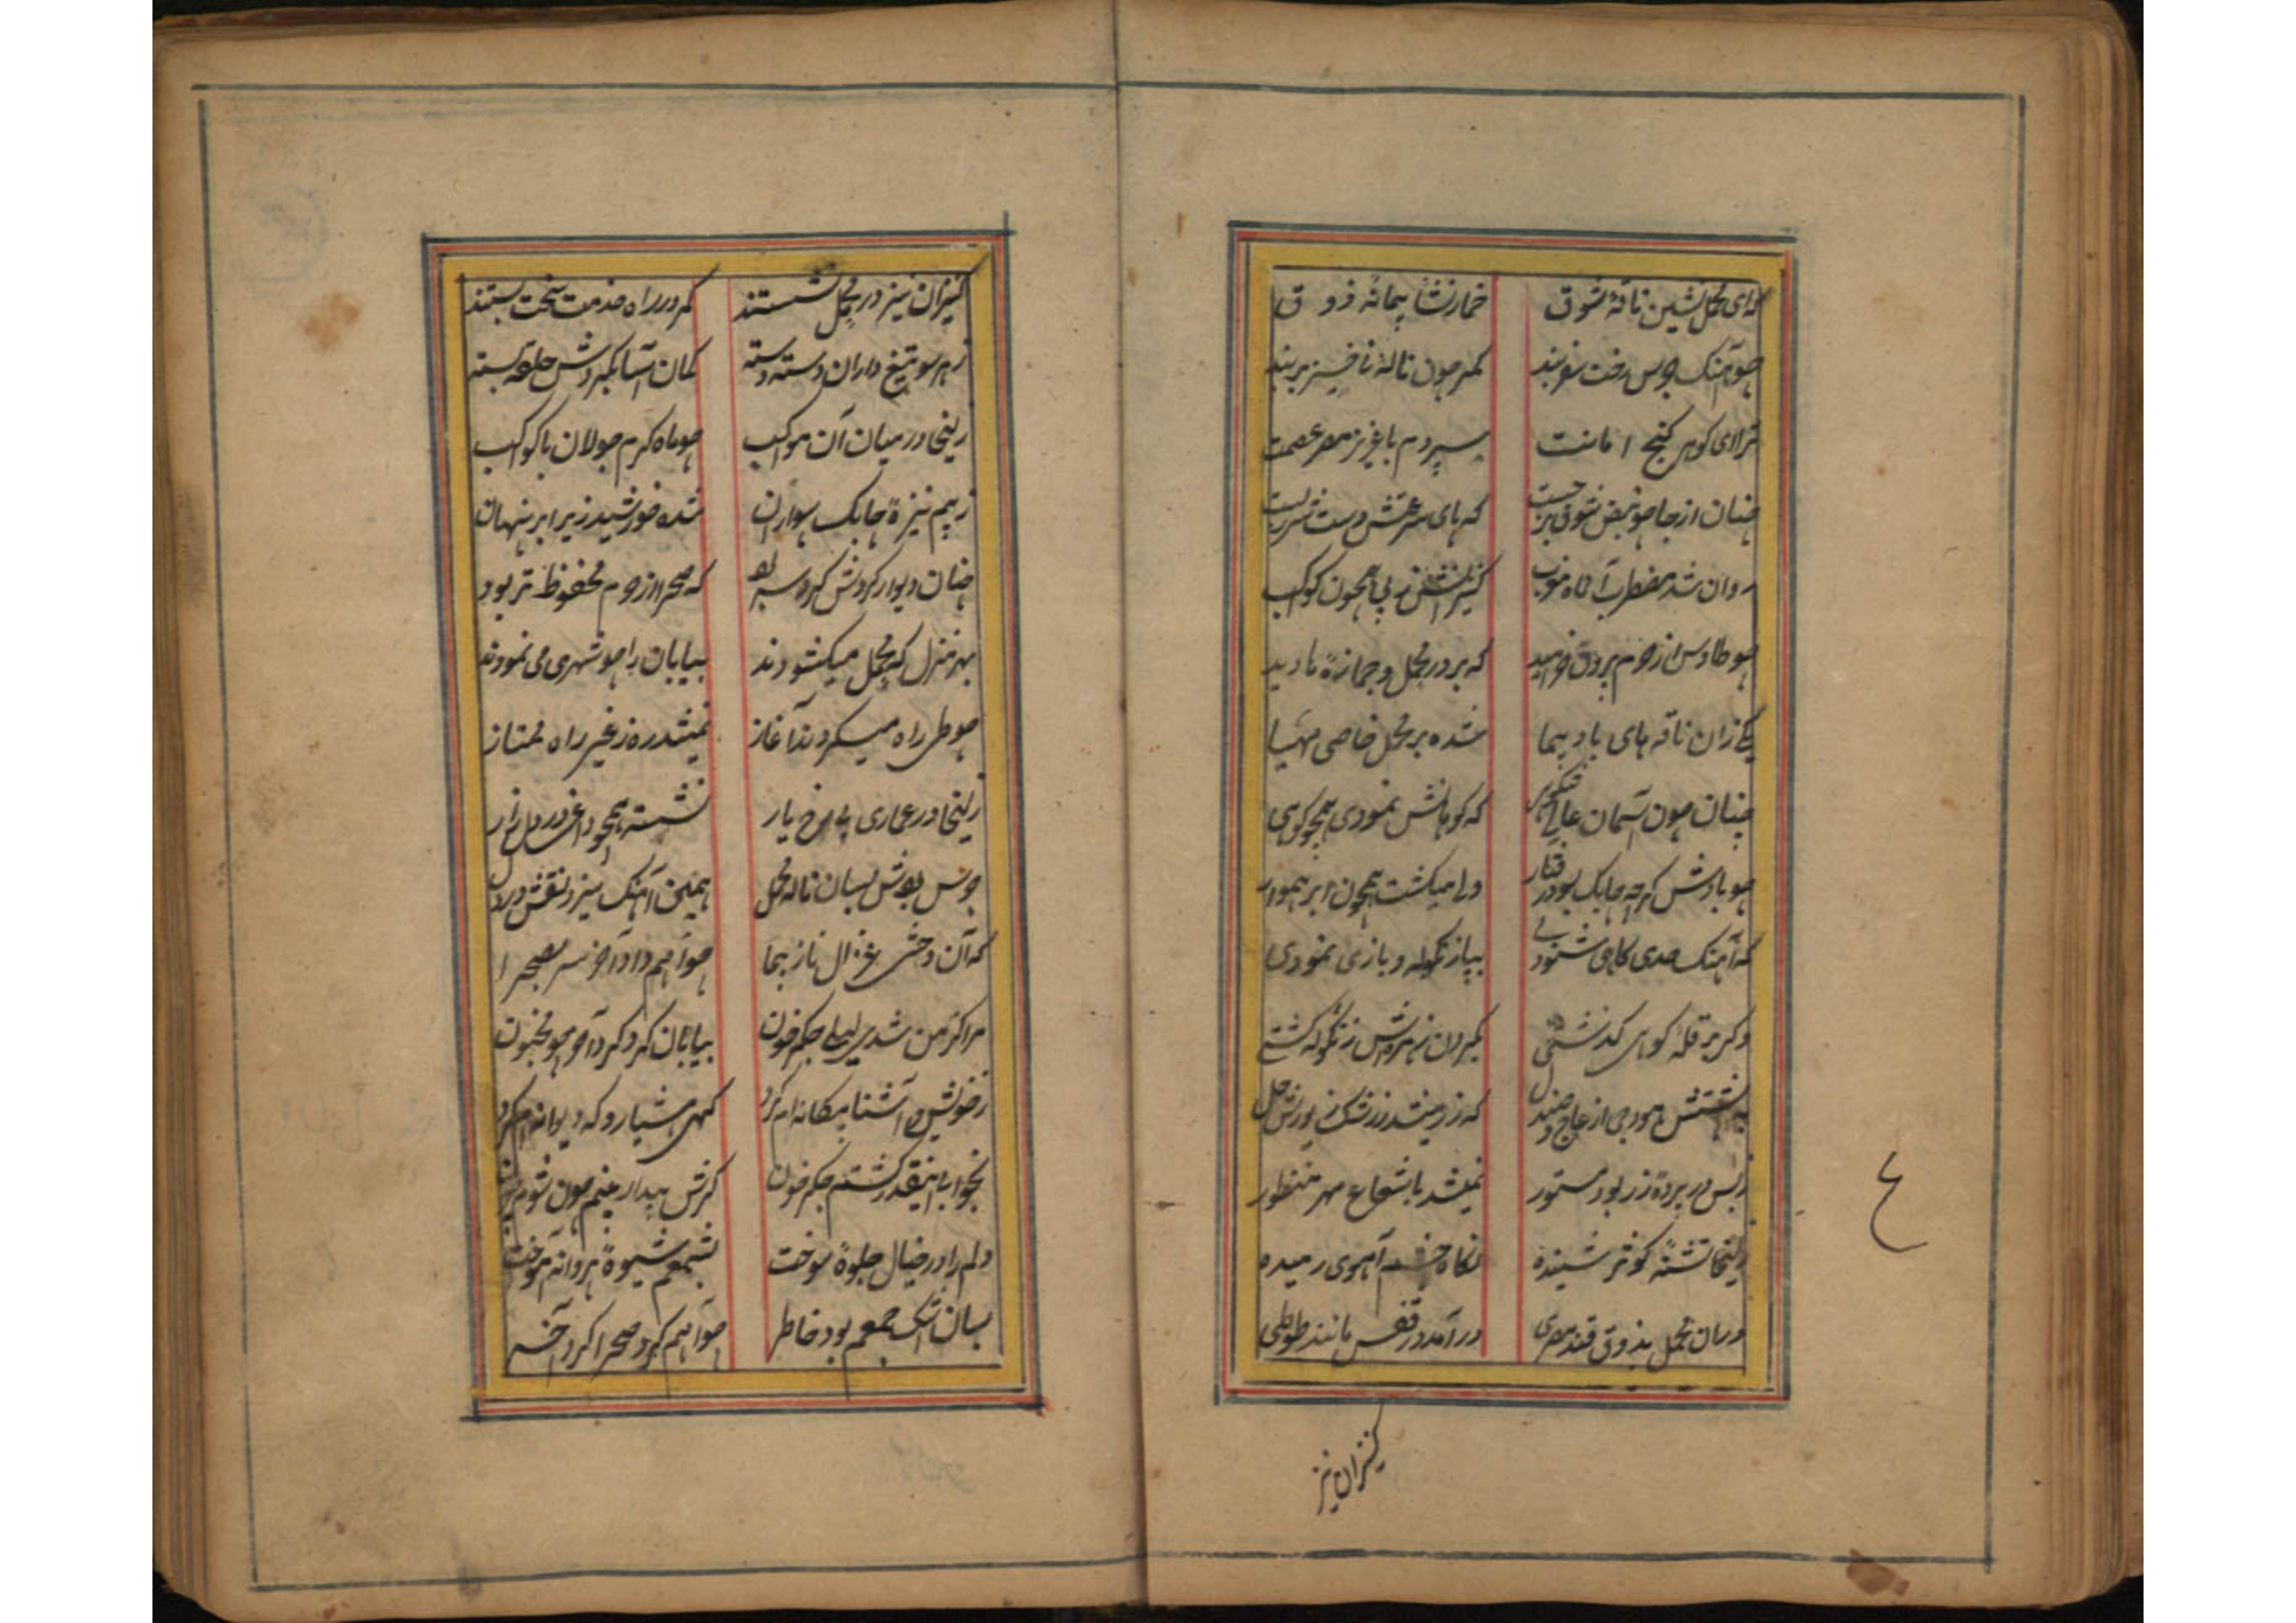 که ای محمل نشین ناقهٔ شوق خمار نشأ پیمانه ذوق
چو آهنک جرس رخت سفر بند کمر چون نالهٔ نا خیز بر بند
ترا ای کوهر کنج امانت سپردم با عزیز مصر عصمت
چنان از جا چو نبض شوق بر جست که پای سرعتش دست
روان شد مضطرب آن ماه کنیزانش ز پی همچون کوکب
چو طاوس از حرم بیرون خرامید که بر در محمل و جمازه نا دید
یکی زان ناقه های باد پیما شده بر محمل خاصی مهیا
چنان چون آسمان عالی که کوهانش نمودی همچو کوهی
چو بادش کرچه چابک بود رفتار ولی میکشت همچون ابر هموار
که آهنک حدی کاهی شنودی بپا زنکوله و بازی نمودی
وکر بر قلهٔ کوهی کذشتی بکردن زهره اش زنکوله کشتی
به پشتش هودجی از عاج و صندل که زر میشد ز رشک زیورش حل
ز بس در پردهٔ زر بود مستور نمیشد با شعاع مهر منظور
زلیخا تشنهٔ کوثر شنیده نکاه چشم آهوی رمیده
در ان محمل بذوق قند مصری در آمد در قفس مانند طوطی
کنیزان نیز
ع
کنیزان نیز در محمل نشستند کمر در راه خدمت سخت بستند
ز هر سو تیغ داران دسته دسته کمان آسا بکردش حلقه بسته
زلیخا در میان آن مواکب چو ماه کرم جولان با کواکب
ز بیم نیزهٔ چابک سواران شده خورشید زیر ابر پنهان
چنان دیوار کردش کرده سر بود که صحرا از حرم محفوظ تر بود
بهر منزل که محمل میکشودند بیابان را چو شهری می نمودند
چو طی راه میکردند آغاز نمیشد ره ز غیر راه ممتاز
زلیخا در عماری بی رخ یار نشسته همچو داغ در دل زار
جرس بودش بسان ناله محمل همین آهنک میزد نقش در دل
که آن وحشی غزال ناز پیما چو آهم داد آخر سر بصحرا
مرا کز من شدی لیلی جکر خون بیابان کرد کرد آخر چو مجنون
ز خویش و آشنا بیکانه ام کرد کهی هشیار و که دیوانه ام کرد
بخواب اینقدر کشتم جکر خون کرش بیدار بینم چون شوم چون
دلم را در خیال جلوهٔ سوخت بشمعم شیوهٔ پروانه آموخت
بسان اشک جمعم بود خاطر چو آهم کرد صحرا کرد آخر